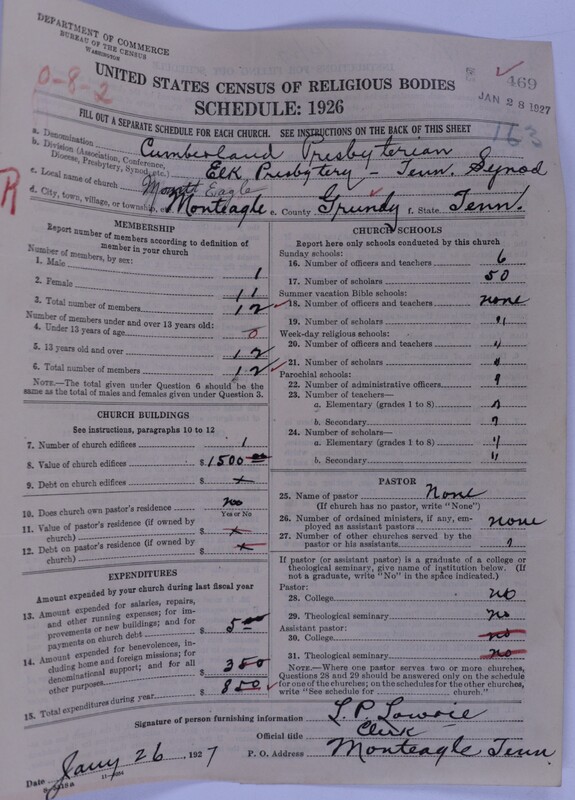 DEPARTMENT OF COMMERCE
BUREAU OF THE CENSUS
WASHINGTON
0-8-2
UNITED STATES CENSUS OF RELIGIOUS BODIES
SCHEDULE: 1926
469
JAN 28 1927
163
FILL OUT A SEPARATE SCHEDULE FOR EACH CHURCH. SEE INSTRUCTIONS ON THE BACK OF THIS SHEET
a. Denomination Cumberland Presbyterian
b. Division (Association, Conference, Diocese, Presbytery, Synod, etc.) Elk Presbytery - Tenn. Synod
c. Local name of church Mount Eagle
R
d. City, town, village, or township Monteagle e. County Grundy f. State Tenn.
MEMBERSHIP
Report number of members according to definition of member in your church
Number of members, by sex:
1. Male 1
2. Female 11
3. Total number of members 12
Number of members under and over 13 years old:
4. Under 13 years of age 0
5. 13 years old and over 12
6. Total number of members 12
NOTE.—The total given under Question 6 should be the same as the total of males and females given under Question 3.
CHURCH BUILDINGS
See instructions, paragraphs 10 to 12
7. Number of church edifices 1
8. Value of church edifices $ 1500 00
9. Debt on church edifices $ x
10. Does church own pastor's residence no
Yes or No
11. Value of pastor's residence (if owned by church) $ x
12. Debt on pastor's residence (if owned by church) $ x
EXPENDITURES
Amount expended by your church during last fiscal year
13. Amount expended for salaries, repairs, and other running expenses; for improvements or new buildings; and for payments on church debt $ 5 00
14. Amount expended for benevolences, including home and foreign missions; for denominational support; and for all other purposes $ 3 50
15. Total expenditures during year $ 8 50
CHURCH SCHOOLS
Report here only schools conducted by this church
Sunday schools:
16. Number of officers and teachers 6
17. Number of scholars 50
Summer vacation Bible schools:
18. Number of officers and teachers none
19. Number of scholars "
Week-day religious schools:
20. Number of officers and teachers "
21. Number of scholars "
Parochial schools:
22. Number of administrative officers "
23. Number of teachers—
a. Elementary (grades 1 to 8) "
b. Secondary "
24. Number of scholars—
a. Elementary (grades 1 to 8) "
b. Secondary "
PASTOR
25. Name of pastor None
(If church has no pastor, write "None")
26. Number of ordained ministers, if any, employed as assistant pastors none
27. Number of other churches served by the pastor or his assistants "
If pastor (or assistant pastor) is a graduate of a college or theological seminary, give name of institution below. (If not a graduate, write "No" in the space indicated.)
Pastor:
28. College no
29. Theological seminary no
Assistant pastor:
30. College no
31. Theological seminary no
NOTE.—Where one pastor serves two or more churches, Questions 28 and 29 should be answered only on the schedule for one of the churches; on the schedules for the other churches, write "See schedule for church."
Signature of person furnishing information L. P. Lowrie
Official title Clerk
Date Jany 26, 1927 P. O. Address Monteagle Tenn